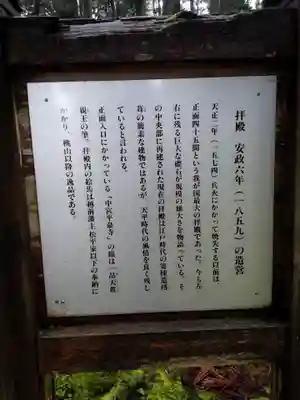 拝殿　安政六年（一八五九）の造営
天正二年（一五七四）兵火にかかって焼失する以前は
正面四十五間という我が国最大の拝殿であった。今も左
右に残る巨大な礎石が規模の雄大さを物語っている。そ
の中央部に再建された現在の拝殿は江戸時代の寄棟造榑
葺の簡素な建物ではあるが、天平時代の風情を良く残し
ていると言われる。
正面入口にかかっている「中宮平泉寺」の額は一品天真
親王の筆、拝殿内の絵馬は越前藩主松平家以下の奉納に
かかり、桃山以降の逸品である。